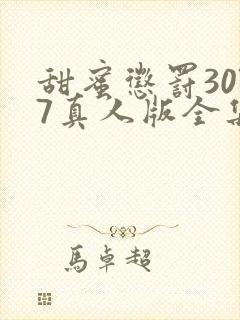 甜蜜懲罰30
7真人版全集
馬卓超